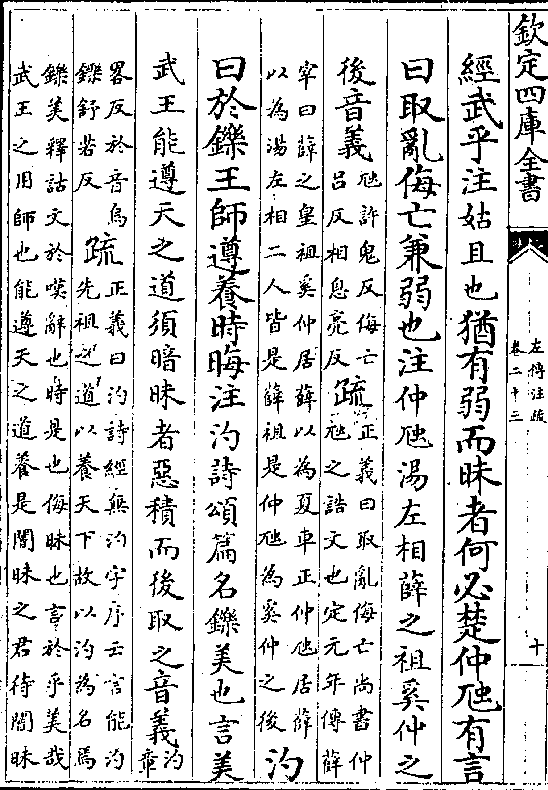 欽定四庫全書
左傳注疏
卷二十三
十
經武乎注姑且也猶有弱而昧者何必楚仲虺有言
曰取亂侮亡兼弱也注仲虺湯左相薛之祖奚仲之
後音義虺許鬼反侮亡
呂反相息亮反疏正義曰取亂侮亡尚書仲
虺之誥文也定元年傳薛
宰曰薛之皇祖奚仲居薛以為夏車正仲虺居薛
以為湯左相二人皆是薛祖是仲虺為奚仲之後汋
曰於鑠王師遵養時晦注汋詩頌篇名鑠美也言美
武王能遵天之道須暗昧者惡積而後取之音義汋
章
畧反於音烏
鑠舒若反疏正義曰汋詩經無汋字序云言能汋
先祖之道以養天下故以汋為名焉
鑠美釋詁文於嘆辭也時是也侮昧也言於乎美哉
武王之用師也能遵天之道養是闇昧之君待闇昧